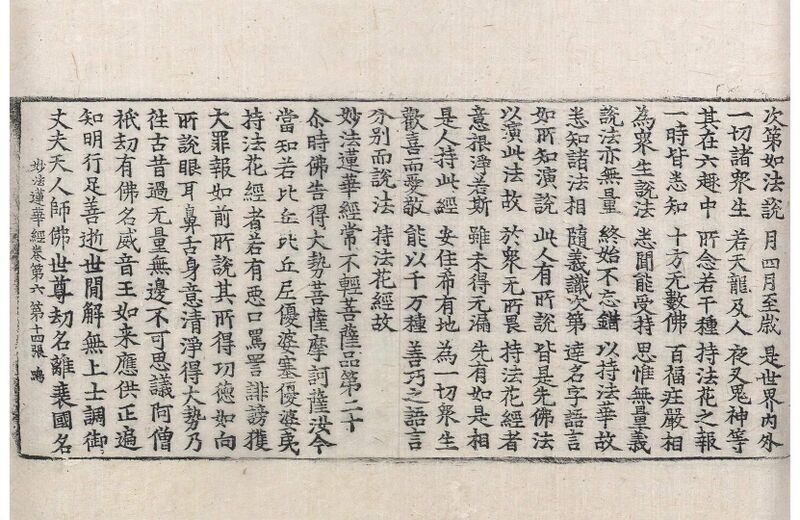 次第如法說 月四月至歲 是世界內外
一切諸衆生 若天龍及人 夜叉鬼神等
其在六趣中 所念若干種 持法花之報
一時皆悉知 十方无數佛 百福莊嚴相
為衆生說法 悉聞能受持 思惟無量義
說法亦無量 終始不忘錯 以持法華故
悉知諸法相 隨義識次第 達名字語言
如所知演說 此人有所說 皆是先佛法
以演此法故 於衆无所畏 持法花經者
意根淨若斯 雖未得无漏 先有如是相
是人持此經 安住希有地 為一切衆生
歡喜而愛敬 能以千万種 善巧之語言
分別而說法 持法花經故
妙法蓮華經常不輕菩薩品第二十
尒時佛告得大勢菩薩摩訶薩汝今
當知若比丘比丘尼優婆塞優婆夷
持法花經者若有惡口罵詈誹謗獲
大罪報如前所說其所得功德如向
所說眼耳鼻舌身意清淨得大勢乃
往古昔過无量無邊不可思議阿僧
祇劫有佛名威音王如来應供正遍
知明行足善逝世間解無上士調御
丈夫天人師佛世尊劫名離衰國名
妙法蓮華經卷第六 第十四張